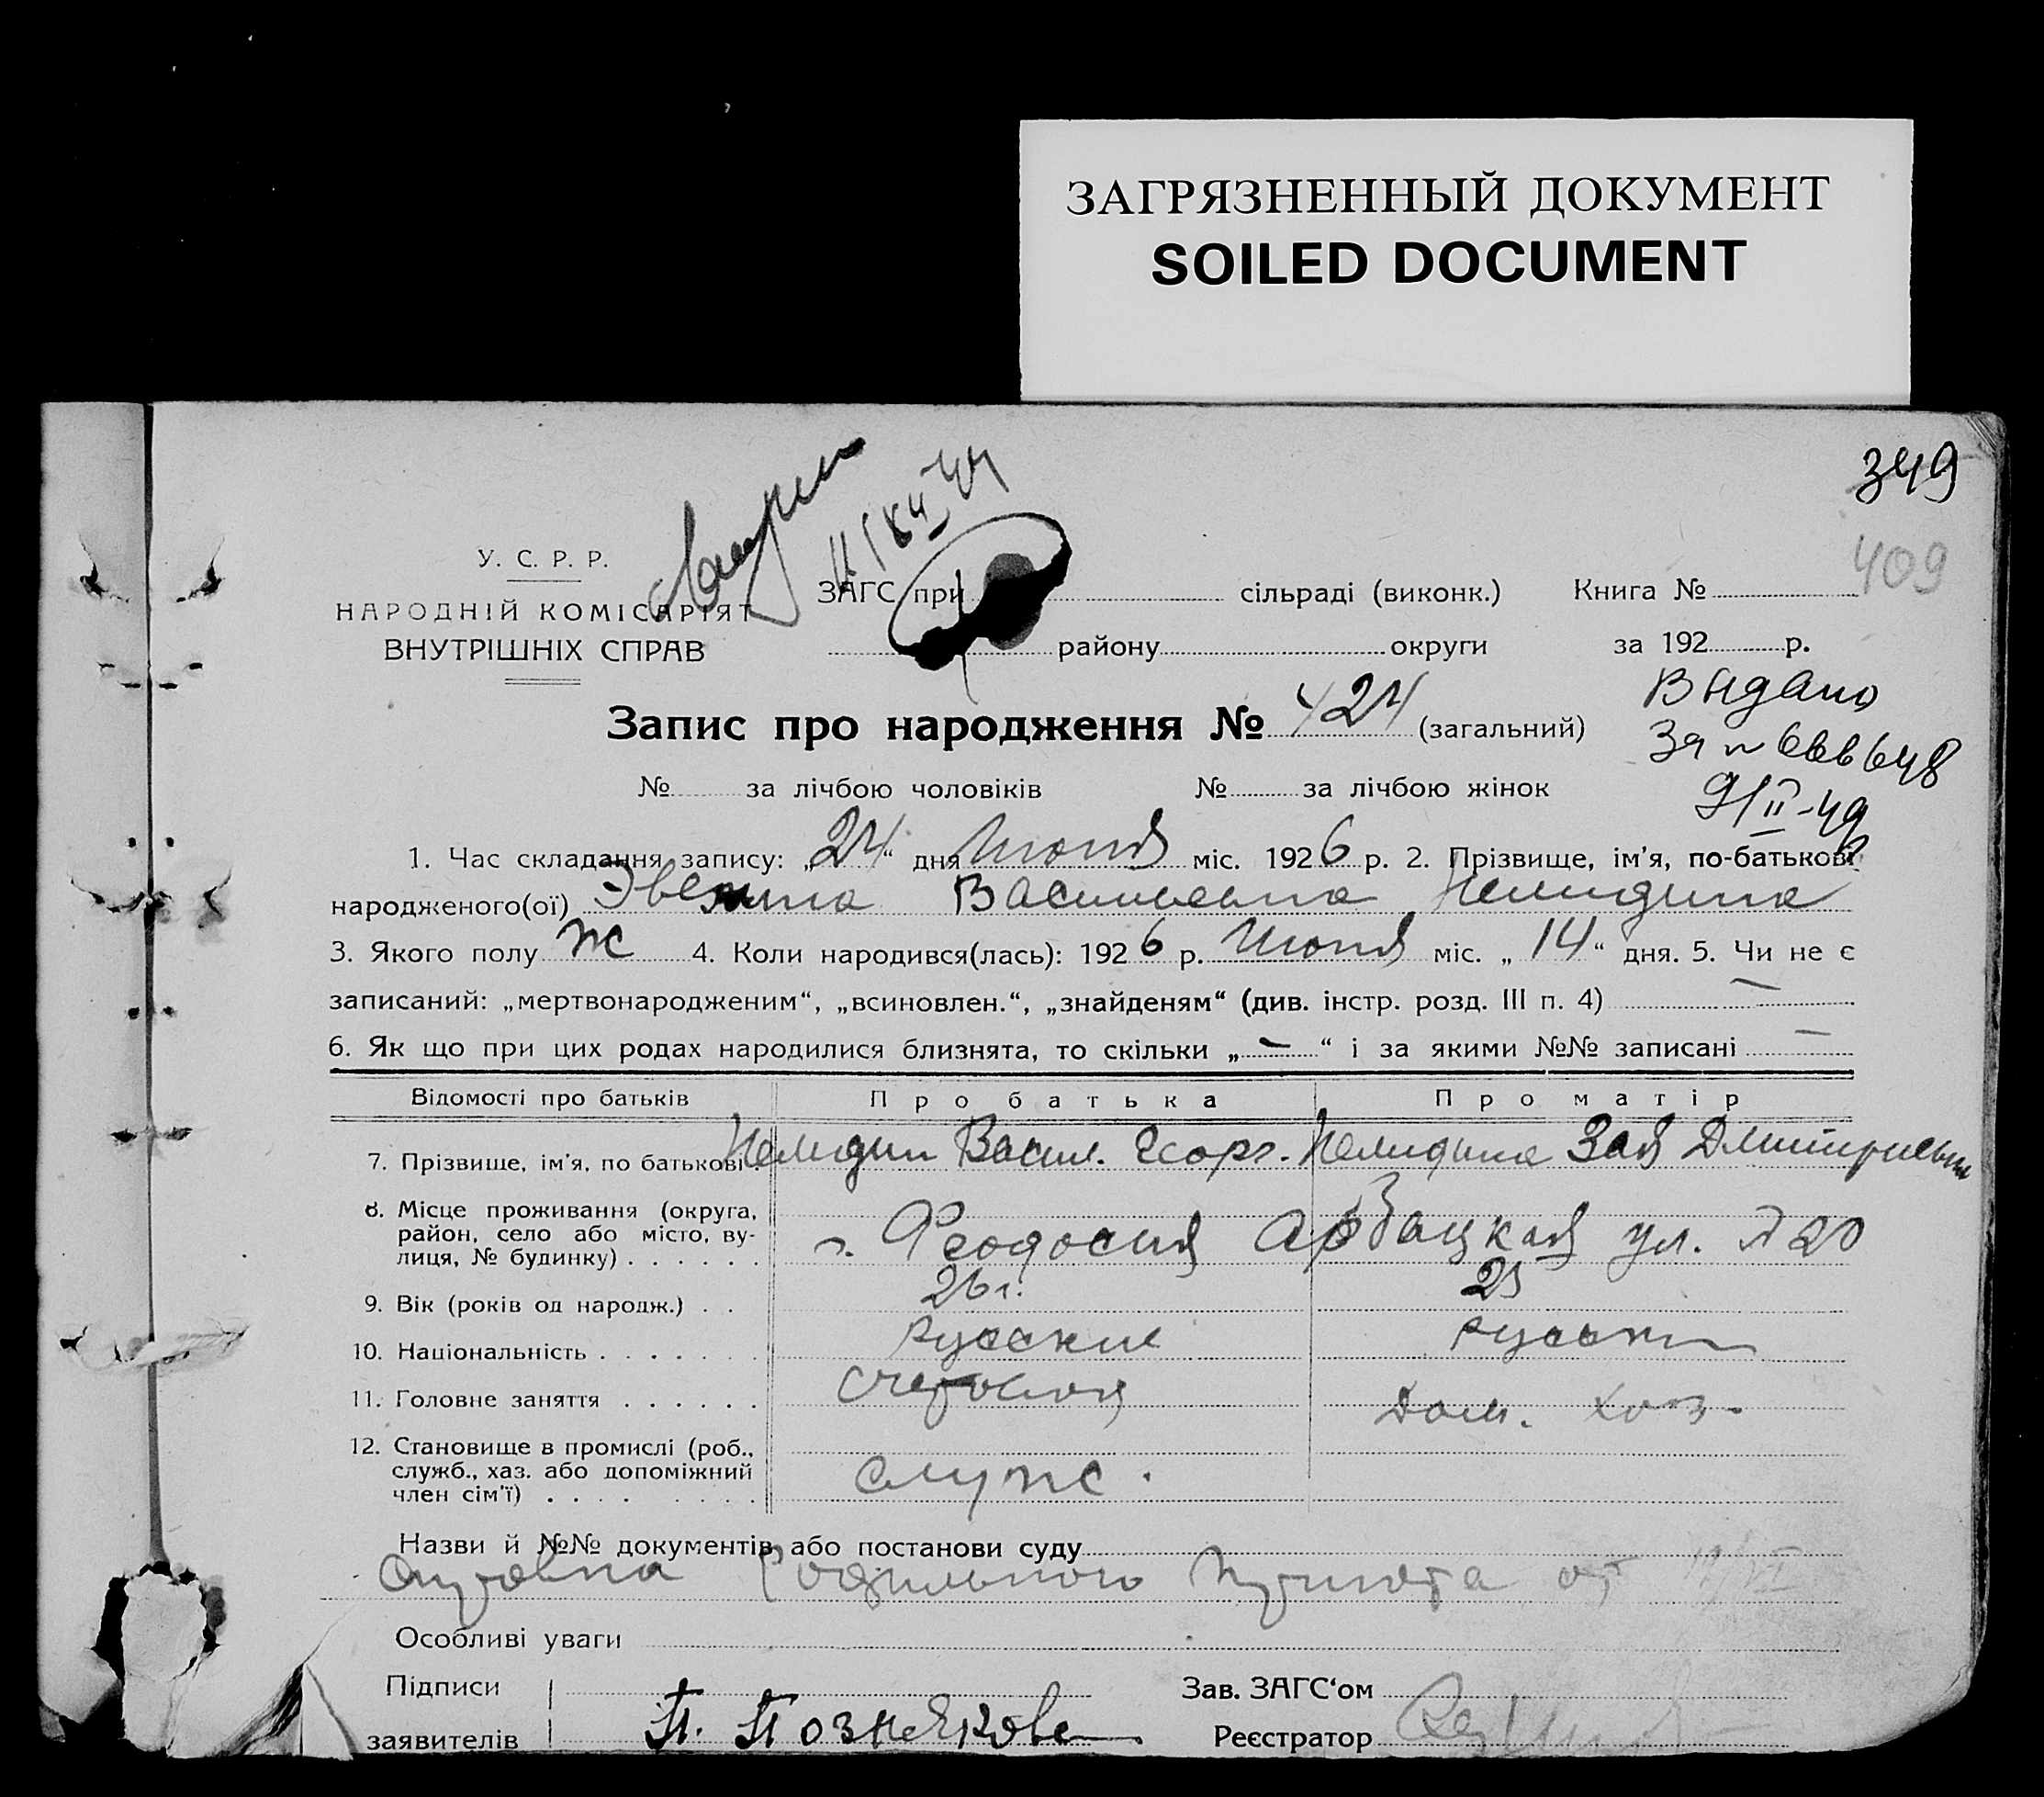 ЗАГРЯЗНЕННЫЙ ДОКУМЕНТ
SOILED DOCUMENT
349
409
У. С. Р. Р.
НАРОДНІЙ КОМІСАРІЯТ
ВНУТРІШНІХ СПРАВ
ЗАГС при сільраді (виконк.) Книга №
району округи за 192 р.
Выдано
За № 666648
9/II-49
Запис про народження № 424 (загальний)
№ за лічбою чоловіків № за лічбою жінок
1. Час складання запису: „24“ дня Июня міс. 1926 р. 2. Прізвище, ім’я, по-батькові
народженого(ої) Эвелина Васильевна Нелидина
3. Якого полу ж 4. Коли народився(лась): 1926 р. Июня міс. „14“ дня. 5. Чи не є
записаний: „мертвонародженим“, „всиновлен.“, „знайденям“ (див. інстр. розд. III п. 4) —
6. Як що при цих родах народилися близнята, то скільки „—“ і за якими №№ записані —
Відомості про батьків Про батька Про матір
7. Прізвище, ім’я, по батькові Нелидин Васил. Георг. Нелидина Зоя Дмитриевна
8. Місце проживання (округа,
район, село або місто, ву-
лиця, № будинку) г. Феодосия ул. № 20
9. Вік (років од народж.) 26 г. 25
10. Національність русские русские
11. Головне заняття счетовод Дом. хоз.
12. Становище в промислі (роб.,
служб., хаз. або допоміжний
член сім’ї) служ.
Назви й №№ документів або постанови суду
Родильного Приюта от
Особливі уваги
Підписи Зав. ЗАГС‘ом
заявителів П. Познякова Реєстратор